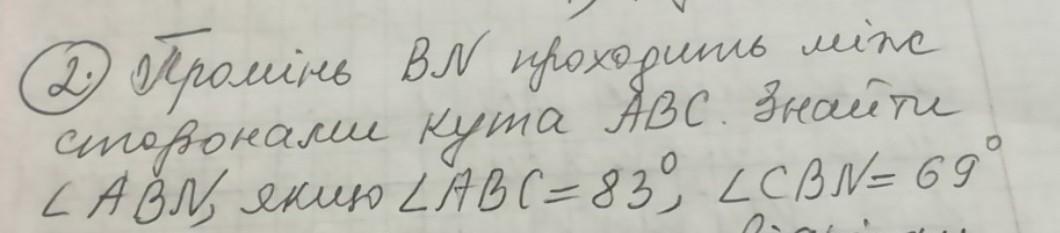 2. Промінь BN проходить між
сторонами кута ABC. Знайти
∠ABN, якщо ∠ABC = 83°, ∠CBN = 69°